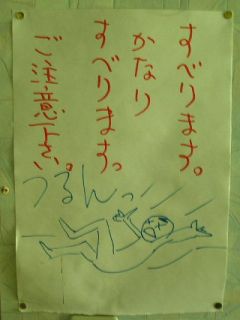 すべります。
かなり
すべります。
ご注意下さい。
つるんっ